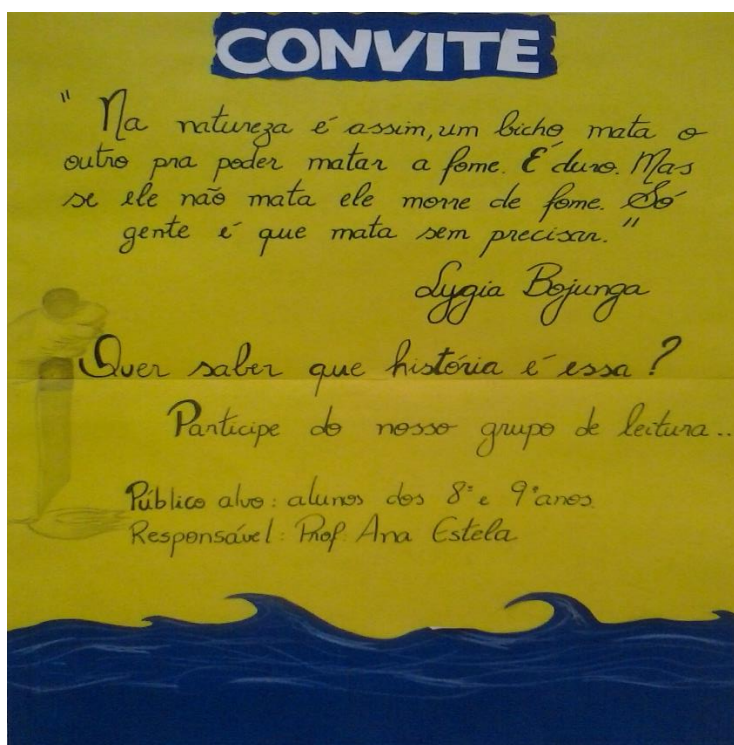 CONVITE
" Na natureza é assim, um bicho mata o
outro pra poder matar a fome. É duro. Mas
se ele não mata ele morre de fome. Só
gente é que mata sem precisar. "
Lygia Bojunga
Quer saber que história é essa ?
Participe do nosso grupo de leitura..
Público alvo : alunos dos 8º e 9º anos.
Responsável : Prof. Ana Estela